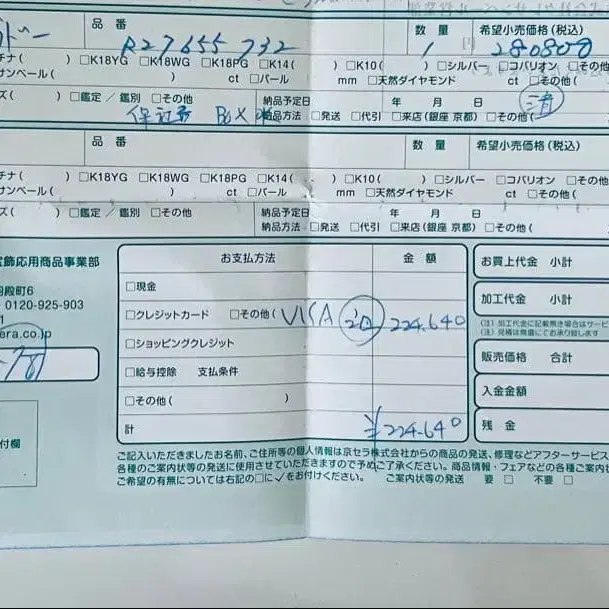 品 番 数 量 希望小売価格(税込)
R27655 732 1 280800
チナ( ) □K18YG □K18WG □K18PG □K14( ) □K10( ) □シルバー □コパリオン □その他
サンベール( ) ct □パール mm □天然ダイヤモンド ct □その他(
ズ( ) □鑑定 / 鑑別 □その他 納品予定日 年 月 日 済
保証書 BOX 納品方法 □発送 □代引 □来店(銀座 京都) □その他(
品 番 数 量 希望小売価格(税込)
チナ( ) □K18YG □K18WG □K18PG □K14( ) □K10( ) □シルバー □コパリオン □その他
サンベール( ) ct □パール mm □天然ダイヤモンド ct □その他(
ズ( ) □鑑定 / 鑑別 □その他 納品予定日 年 月 日
納品方法 □発送 □代引 □来店(銀座 京都) □その他(
宝飾応用商品事業部
羽殿町6
0120-925-903
era.co.jp
付欄
お支払方法 金 額
□現金
□クレジットカード □その他( VISA 2回 224.640
□ショッピングクレジット
□給与控除 支払条件
□その他( )
計 ¥224.640
お買上代金 小計
加工代金 小計
(注)加工代金に記載無き場合はサービ
(注)見積は無償にてお承り致します
販売価格 合計
入金金額
残 金
ご記入いただきましたお名前、ご住所等の個人情報は京セラ株式会社からの商品の発送、修理などアフターサービス
各種のご案内状等の発送に使用させていただきますので予めご了承ください。商品情報・フェアなどの各種ご案内
ご希望の有無については右記の□に✓をお付けください。 ご案内状等の発送 要 □ 不要 □